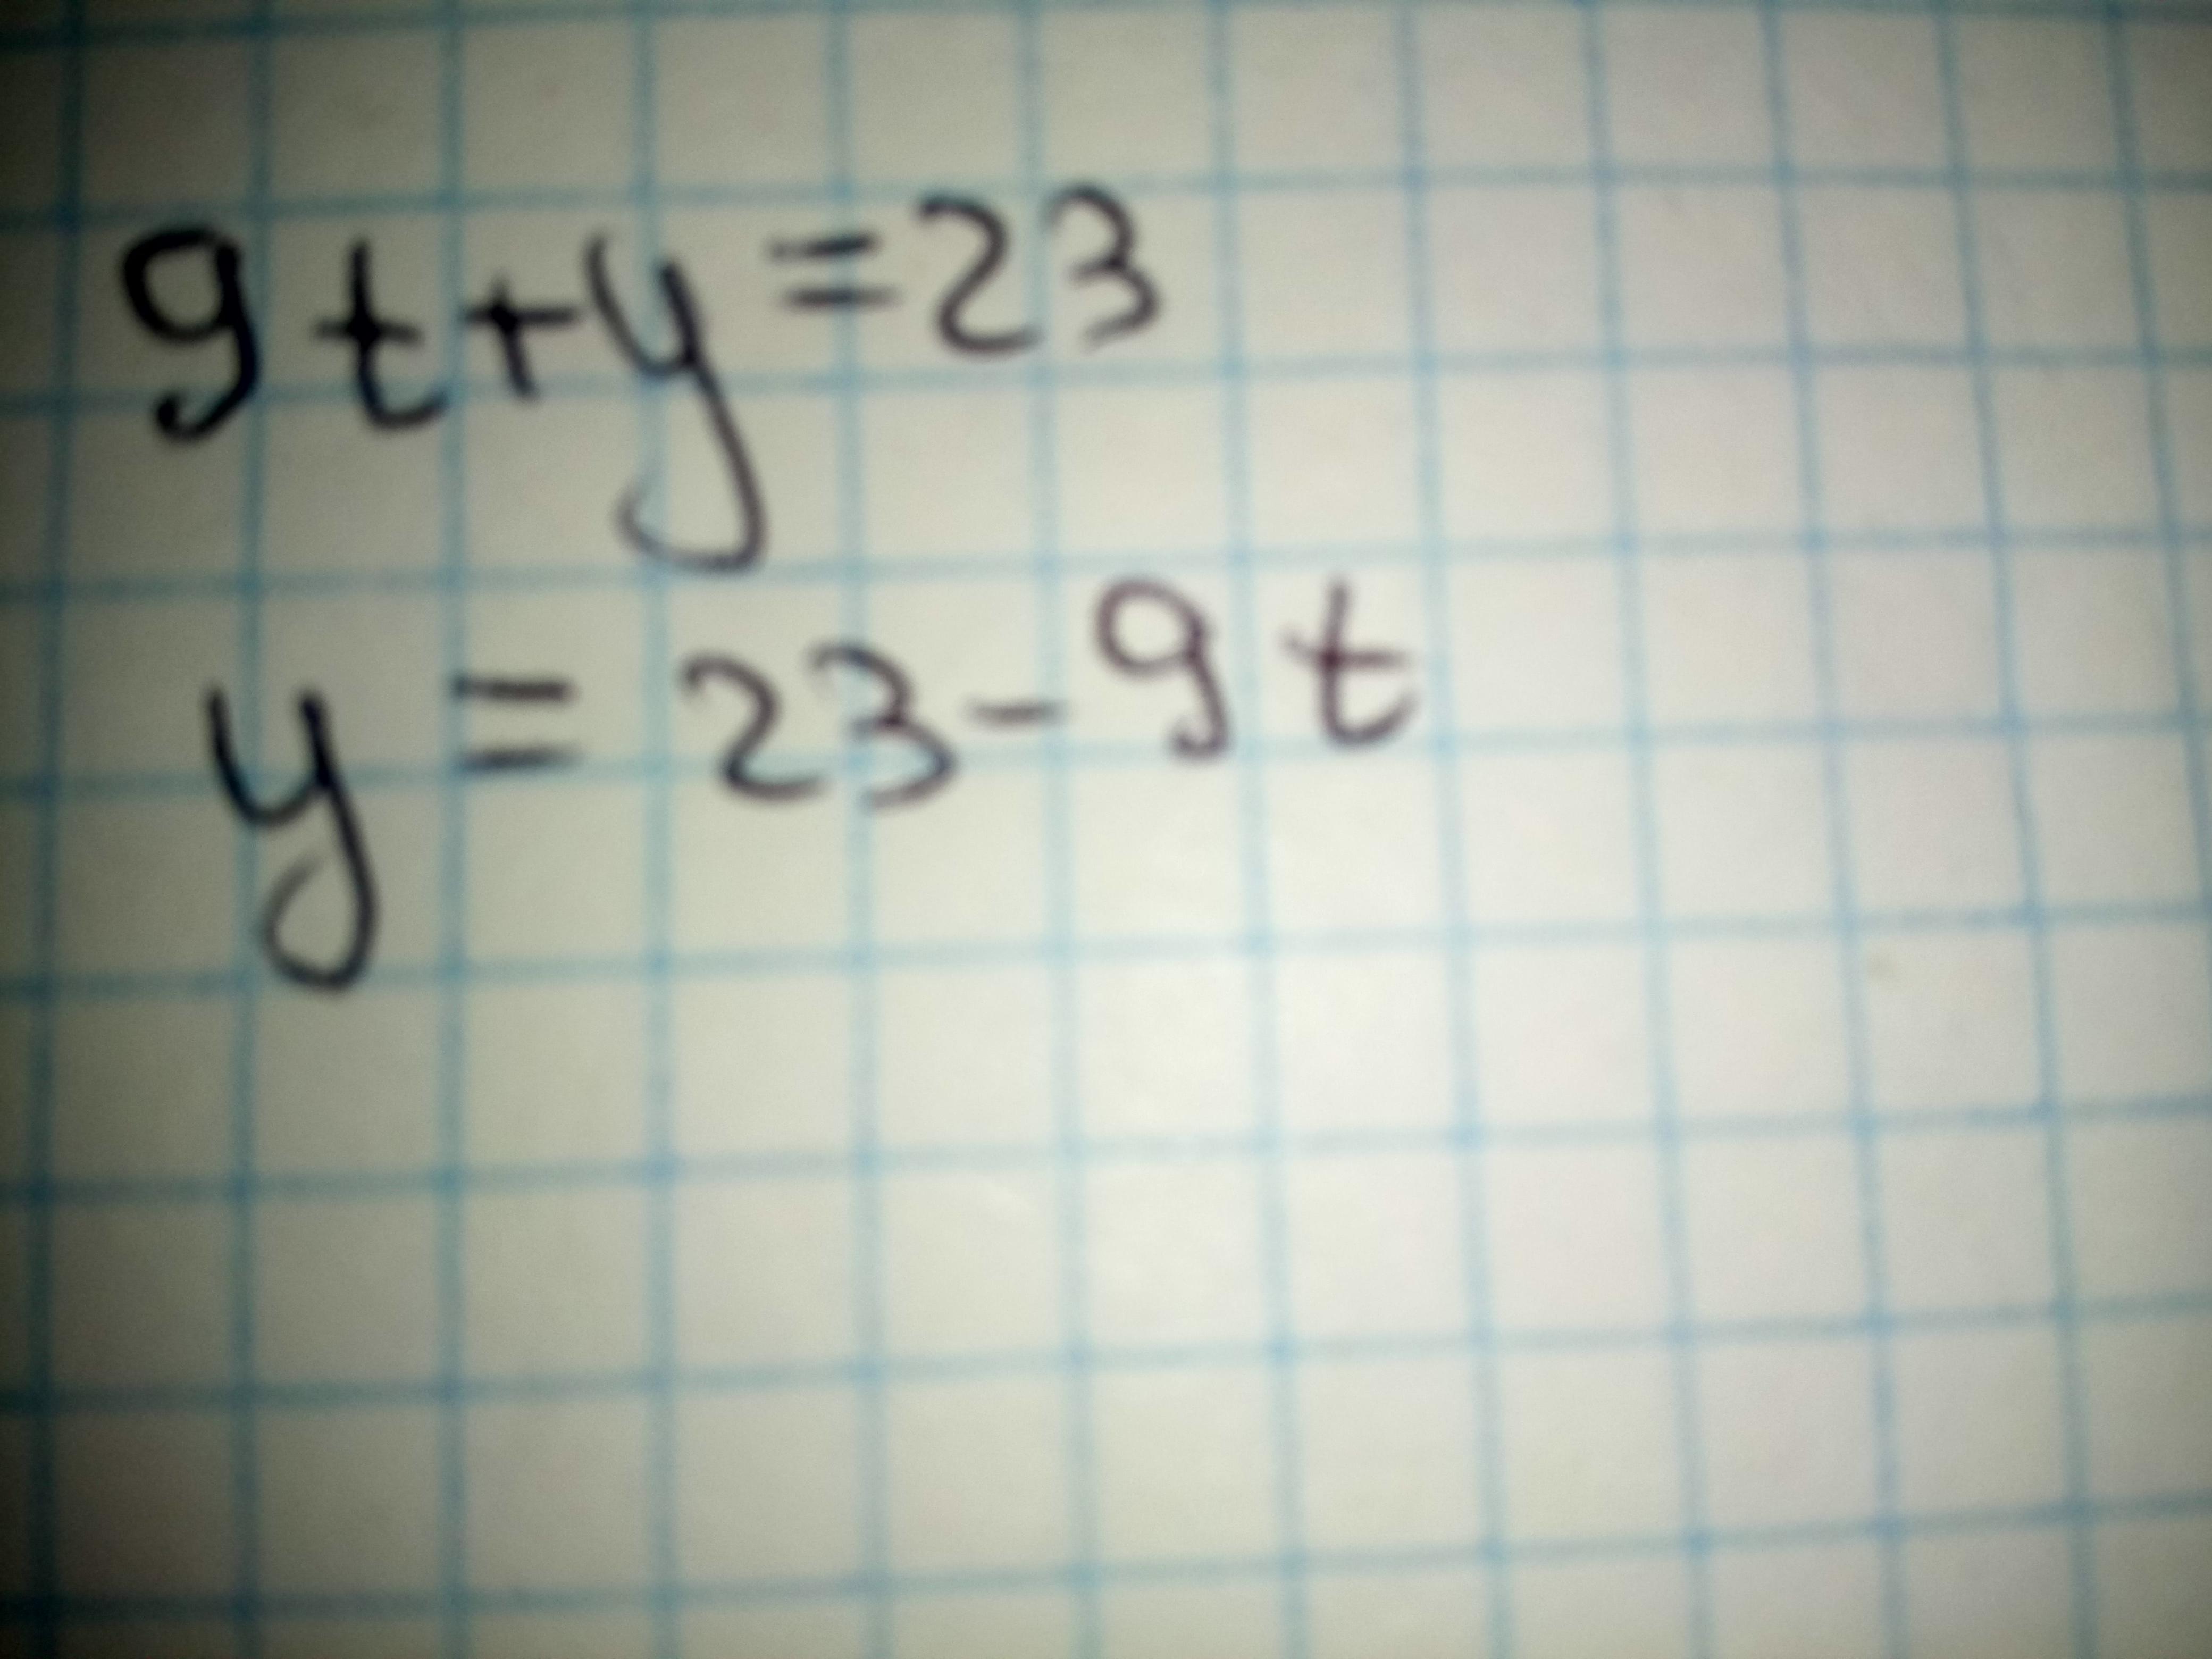 9t+y=23
y=23-9t